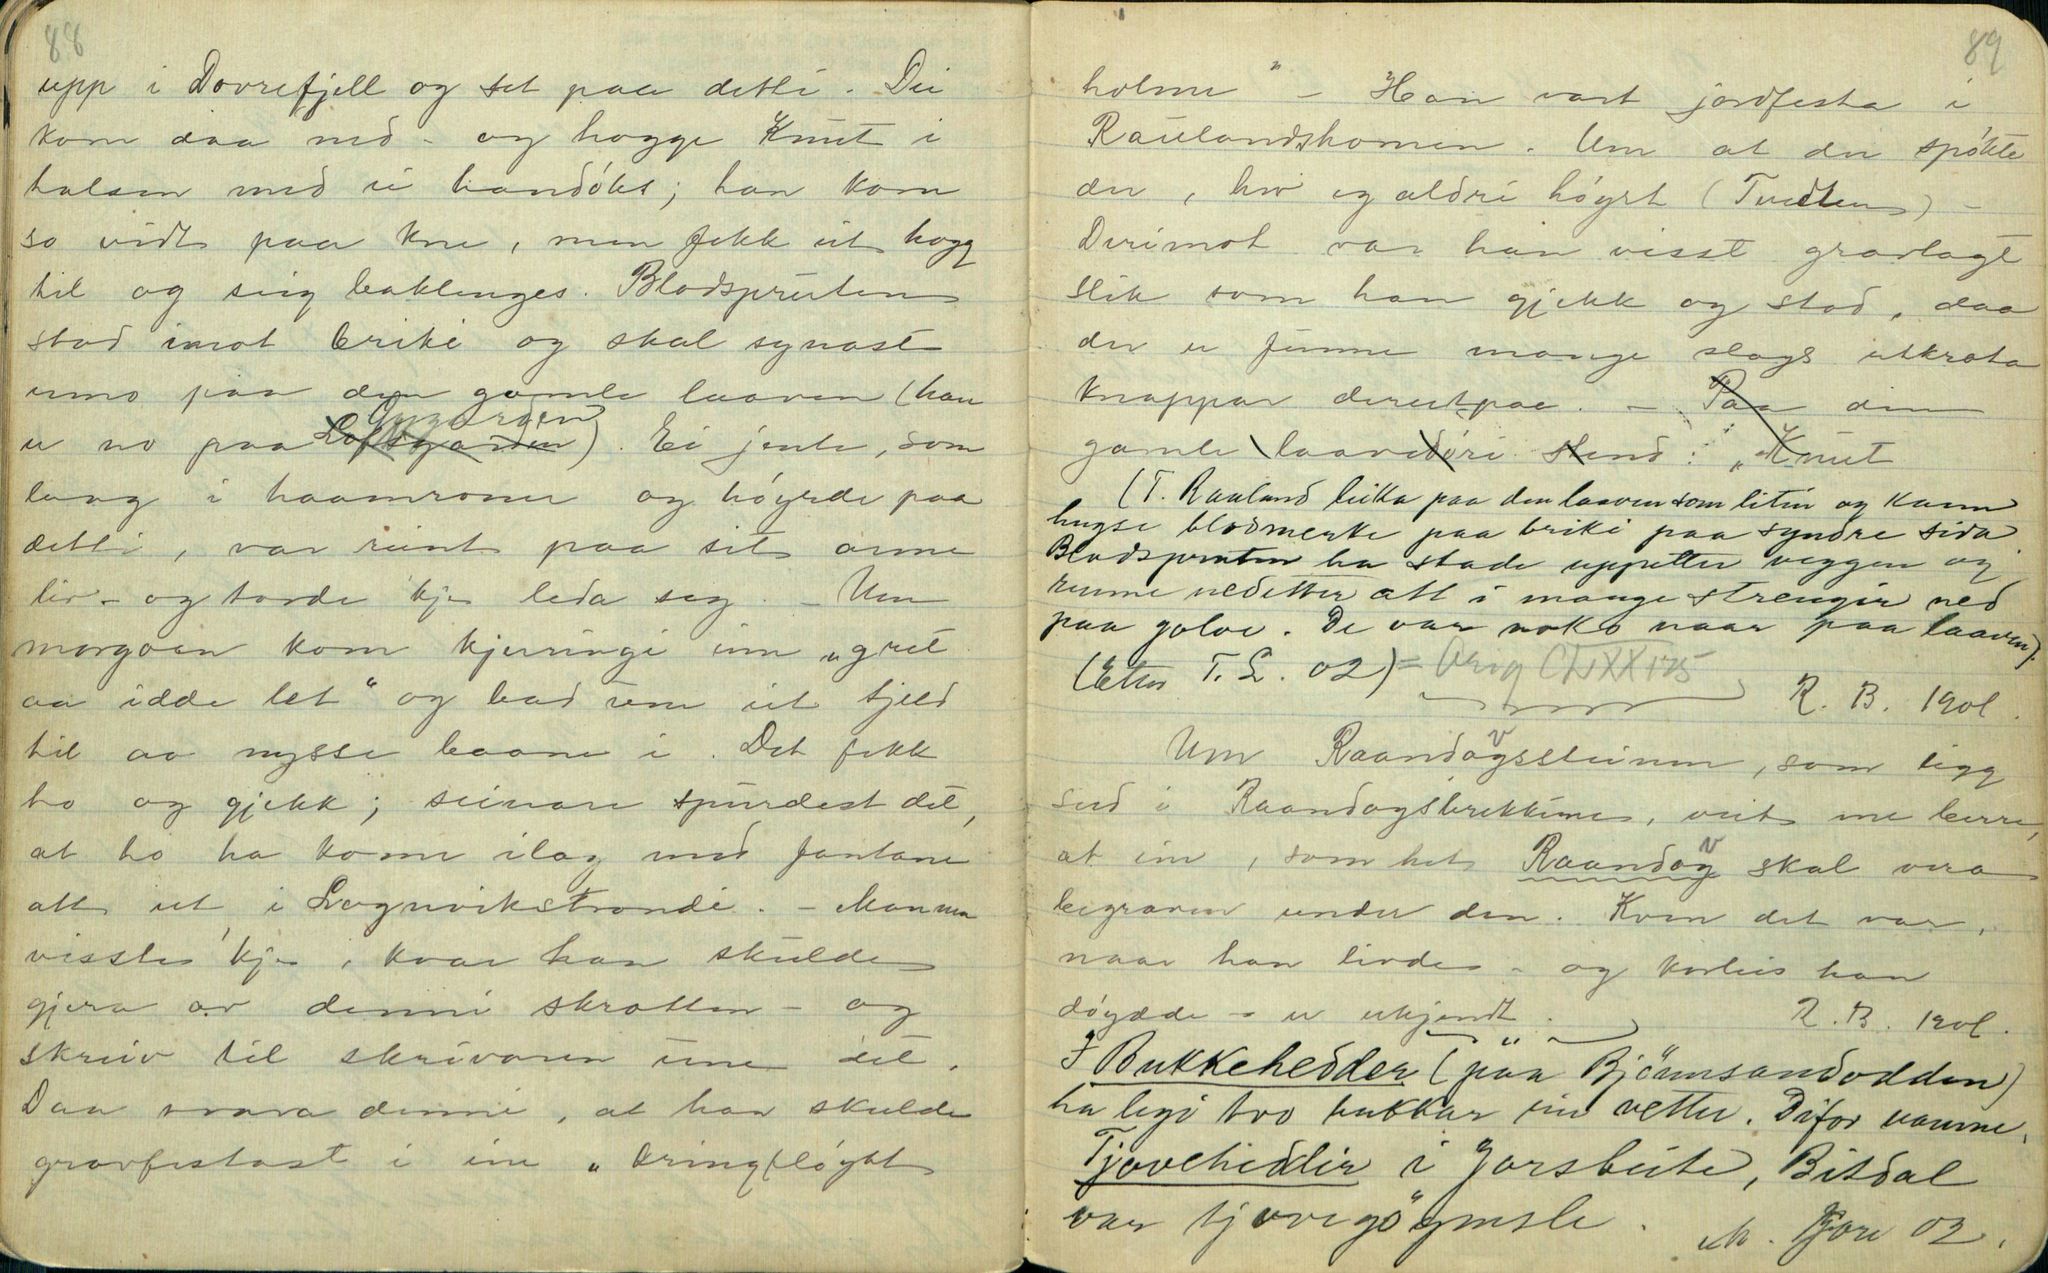 88
upp i Dovrefjell og set paa detti. Dei
kom daa ned - og hogge Knut i
halsen med ei handöks; han kom
so vidt paa kne, men fekk eit hogg
til og seig baklenges. Blodspruten
stod imot briki og skal synast
enno paa den gamle laaven (han
Nygarden
e no paa Loftsgarden). Ei jente, som
laag i haamrome og höyrde paa
detti, var reint paa sit arme
liv - og torde kje leda seg. - Um
morgoen kom kjeringi inn "gret
aa idde let" og bad um eit fjeld
til aa nysse baane i. Det fekk
ho og gjekk; seinare spurdest det,
at ho ha kome ilag med fantane
att ut i Lognvikstrondi. - Mannen
visste kje, kvar han skulde
gjera av denni skrotten - og
skreiv til skrivaren um det.
Daa svara denni, at han skulde
gravfestast i ein "kringflöygt
89
holme" - Han vart jordfesta i
Raulandshomen. Um at der spökte
der, hev eg aldri höyrt (Tvedten) -
Derimot var han visst gravlagt
slik som han gjekk og stod, daa
der e funne mange slags utkrota
knappar derutpaa. - Paa din
gamle laavedöri stend: "Knut
(T. Rauland leika paa den laaven som liten og kann
hugse blodmerke paa briki paa syndre sida.
Blodspruten ha stade uppetter veggen og
runne nedetter att i mange strengir ned
paa golve. De var noko naar paa laaven).
(Etter T. L. 02) = Orig CLXX 175
R. B. 1901.
v
Um Raandagssteinen, som ligg
sud i Raandagsbrekkune, veit me berre,
v
at ein, som het Raandag skal vera
begraven under den. Kven det var,
naar han livde - og korleis han
döydde - e ukjendt.
R. B. 1901.
I Bukkehedder (paa Björnsandodden)
ha legi tvo bukkar ein vetter. Difor namne.
Tjovehidler i Jorsbeite, Bitdal
var tjovegöymsle.
M. Bjore 02.